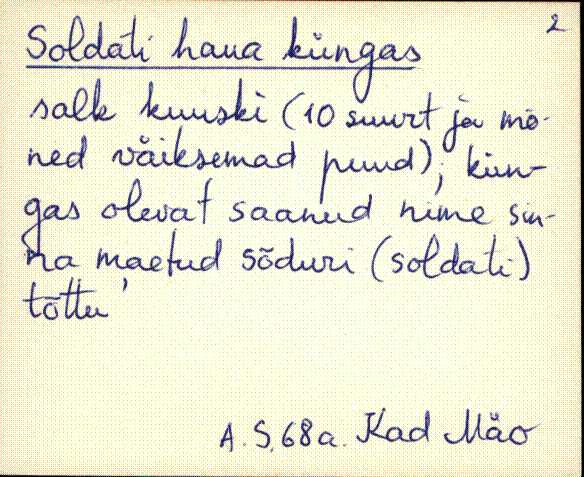 2
Soldati haua küngas
salk kuuski (10 suurt ja mõ-
ned väiksemad puud), kün-
gas olevat saanud nime sin-
na maetud sõduri (soldati)
tõttu'
A. S. 68a. Kad Mäo